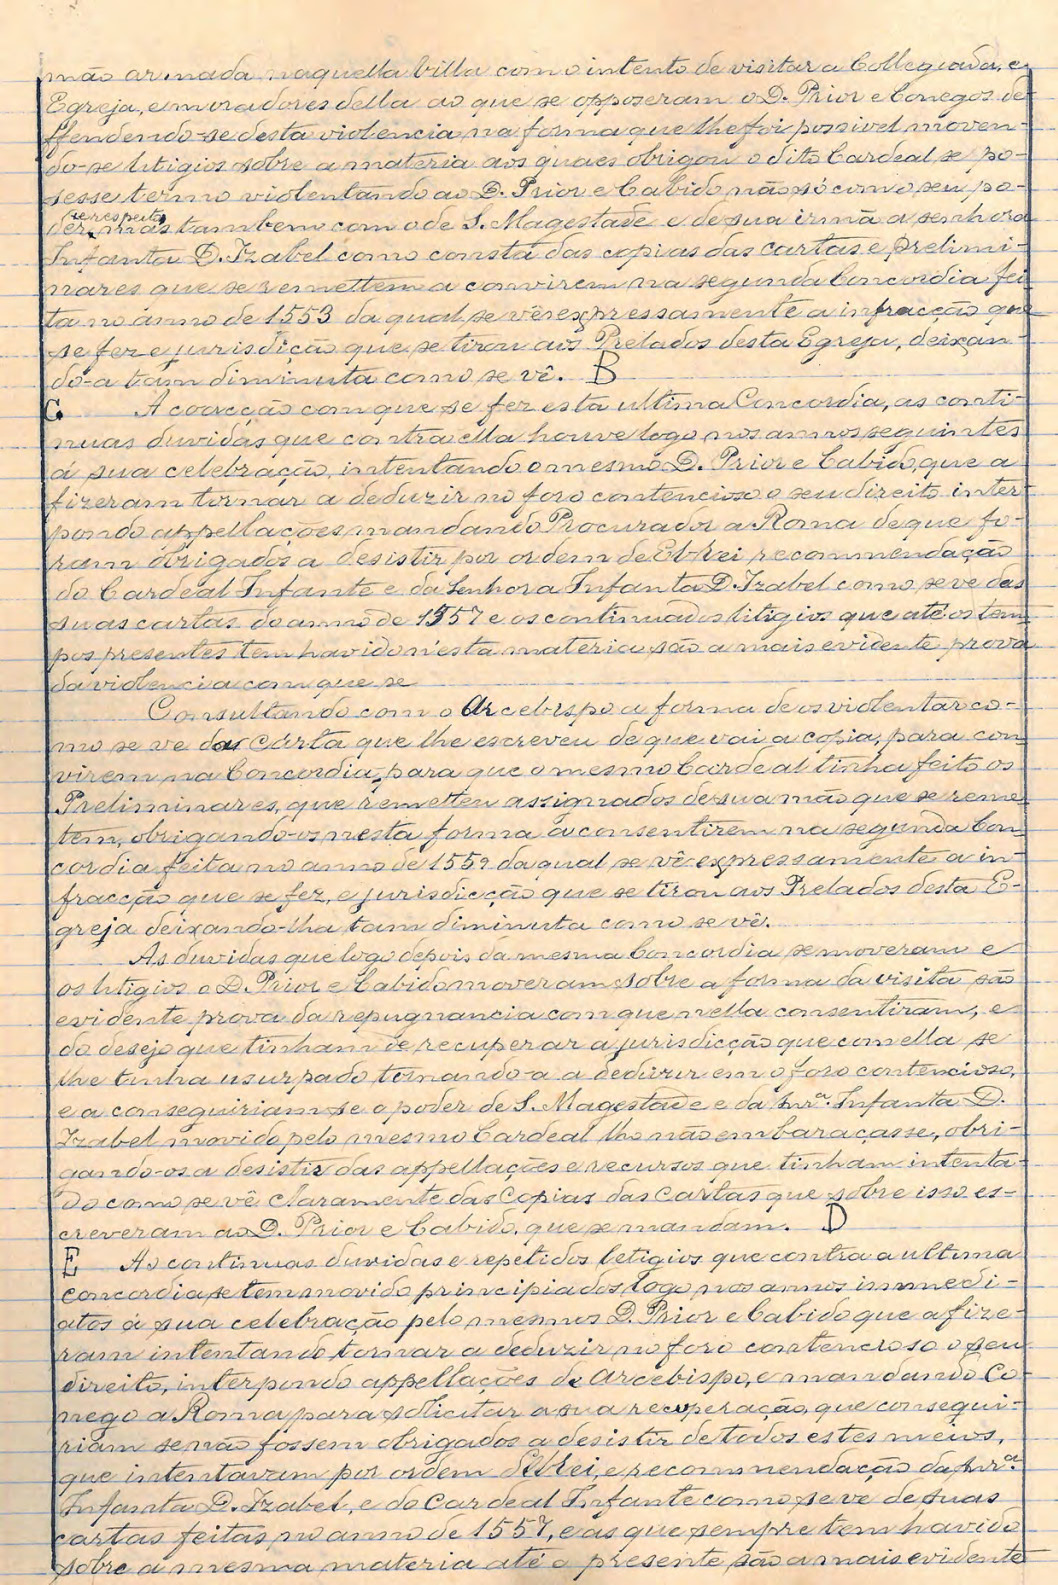 mão armada naquella villa com o intento de visitar a Collegiada, e
Egreja, e moradores della ao que se oppozeram o D. Prior e Conegos de-
ffendendo-se desta violencia na forma que lhe foi possivel moven-
do-se litigios sobre a materia aos quaes obrigou o dito Cardeal, se po-
sesse termo violentando ao D. Prior e Cabido não só com o seu po-
der, e respeito mas tambem com o de S. Magestade e de sua irmã a senhora
Infanta D. Izabel como consta das copias das cartas e prelimi-
nares que se remettem a convirem na segunda Concordia fei-
ta no anno de 1553 da qual se vê expressamente a infracção que
se fez e jurisdição que se tirou aos Prelados desta Egreja, deixan-
do-a tam diminuta como se vê. B
C A coacção com que se fez esta ultima Concordia, as conti-
nuas duvidas que contra ella houve logo nos annos seguintes
á sua celebração, intentando o mesmo D. Prior e Cabido, que a
fizeram tornar a deduzir no foro contencioso o seu direito inter-
pondo appellações, mandando Procurador a Roma de que fo-
ram obrigados a desistir por ordem de El-rei recommendação
do Cardeal Infante e da Senhora Infanta D. Izabel como se ve das
suas cartas do anno de 1557 e os continuados litigios que até os tem-
pos presentes tem havido n'esta materia são a mais evidente prova
da violencia com que se
Consultando com o Arcebispo a forma de os violentar co-
mo se ve da carta que lhe escreveu de que vai a copia, para con-
virem na Concordia, para que o mesmo Cardeal tinha feito os
Preliminares, que remetteu assignados de sua mão que se reme-
tem, obrigando-os nesta forma a consentirem na segunda Con-
cordia feita no anno de 1553 da qual se vê expressamente a in-
fracção que se fez, e jurisdicção que se tirou aos Prelados desta E-
greja deixando-lha tam diminuta como se vê.
As duvidas que logo depois da mesma Concordia se moveram e
os litigios o D. Prior e Cabido moveram sobre a forma da visita são
evidente prova da repugnancia com que nella consentiram, e
do desejo que tinham de recuperar a jurisdicção que com ella se
lhe tinha usurpado tornando-a a deduzir em o foro contencioso,
e a conseguiriam se o poder de S. Magestade e da Snrª. Infanta D.
Izabel movido pelo mesmo Cardeal lho não embaraçasse, obri-
gando-os a desistir das appellações e recursos que tinham intenta-
do como se vê claramente das Copias das Cartas que sobre isso es-
creveram ao D. Prior e Cabido, que se mandam. D
E As continuas duvidas e repetidos letigios que contra a ultima
concordia se tem movido principiados logo nos annos immedi-
atos á sua celebração pelo mesmos D. Prior e Cabido que a fize-
ram intentando tornar a deduzir no foro contencioso o seu
direito, interpondo appellações de Arcebispo, e mandando Co-
nego a Roma para solicitar a sua recuperação, que consegui-
riam se não fossem obrigados a desistir de todos estes meios,
que intentavam por ordem d'El-rei, e recommendação da Snrª.
Infanta D. Izabel, e do Cardeal Infante como se ve de suas
cartas feitas no anno de 1557, e as que sempre tem havido
sobre a mesma materia até o presente são a mais evidente